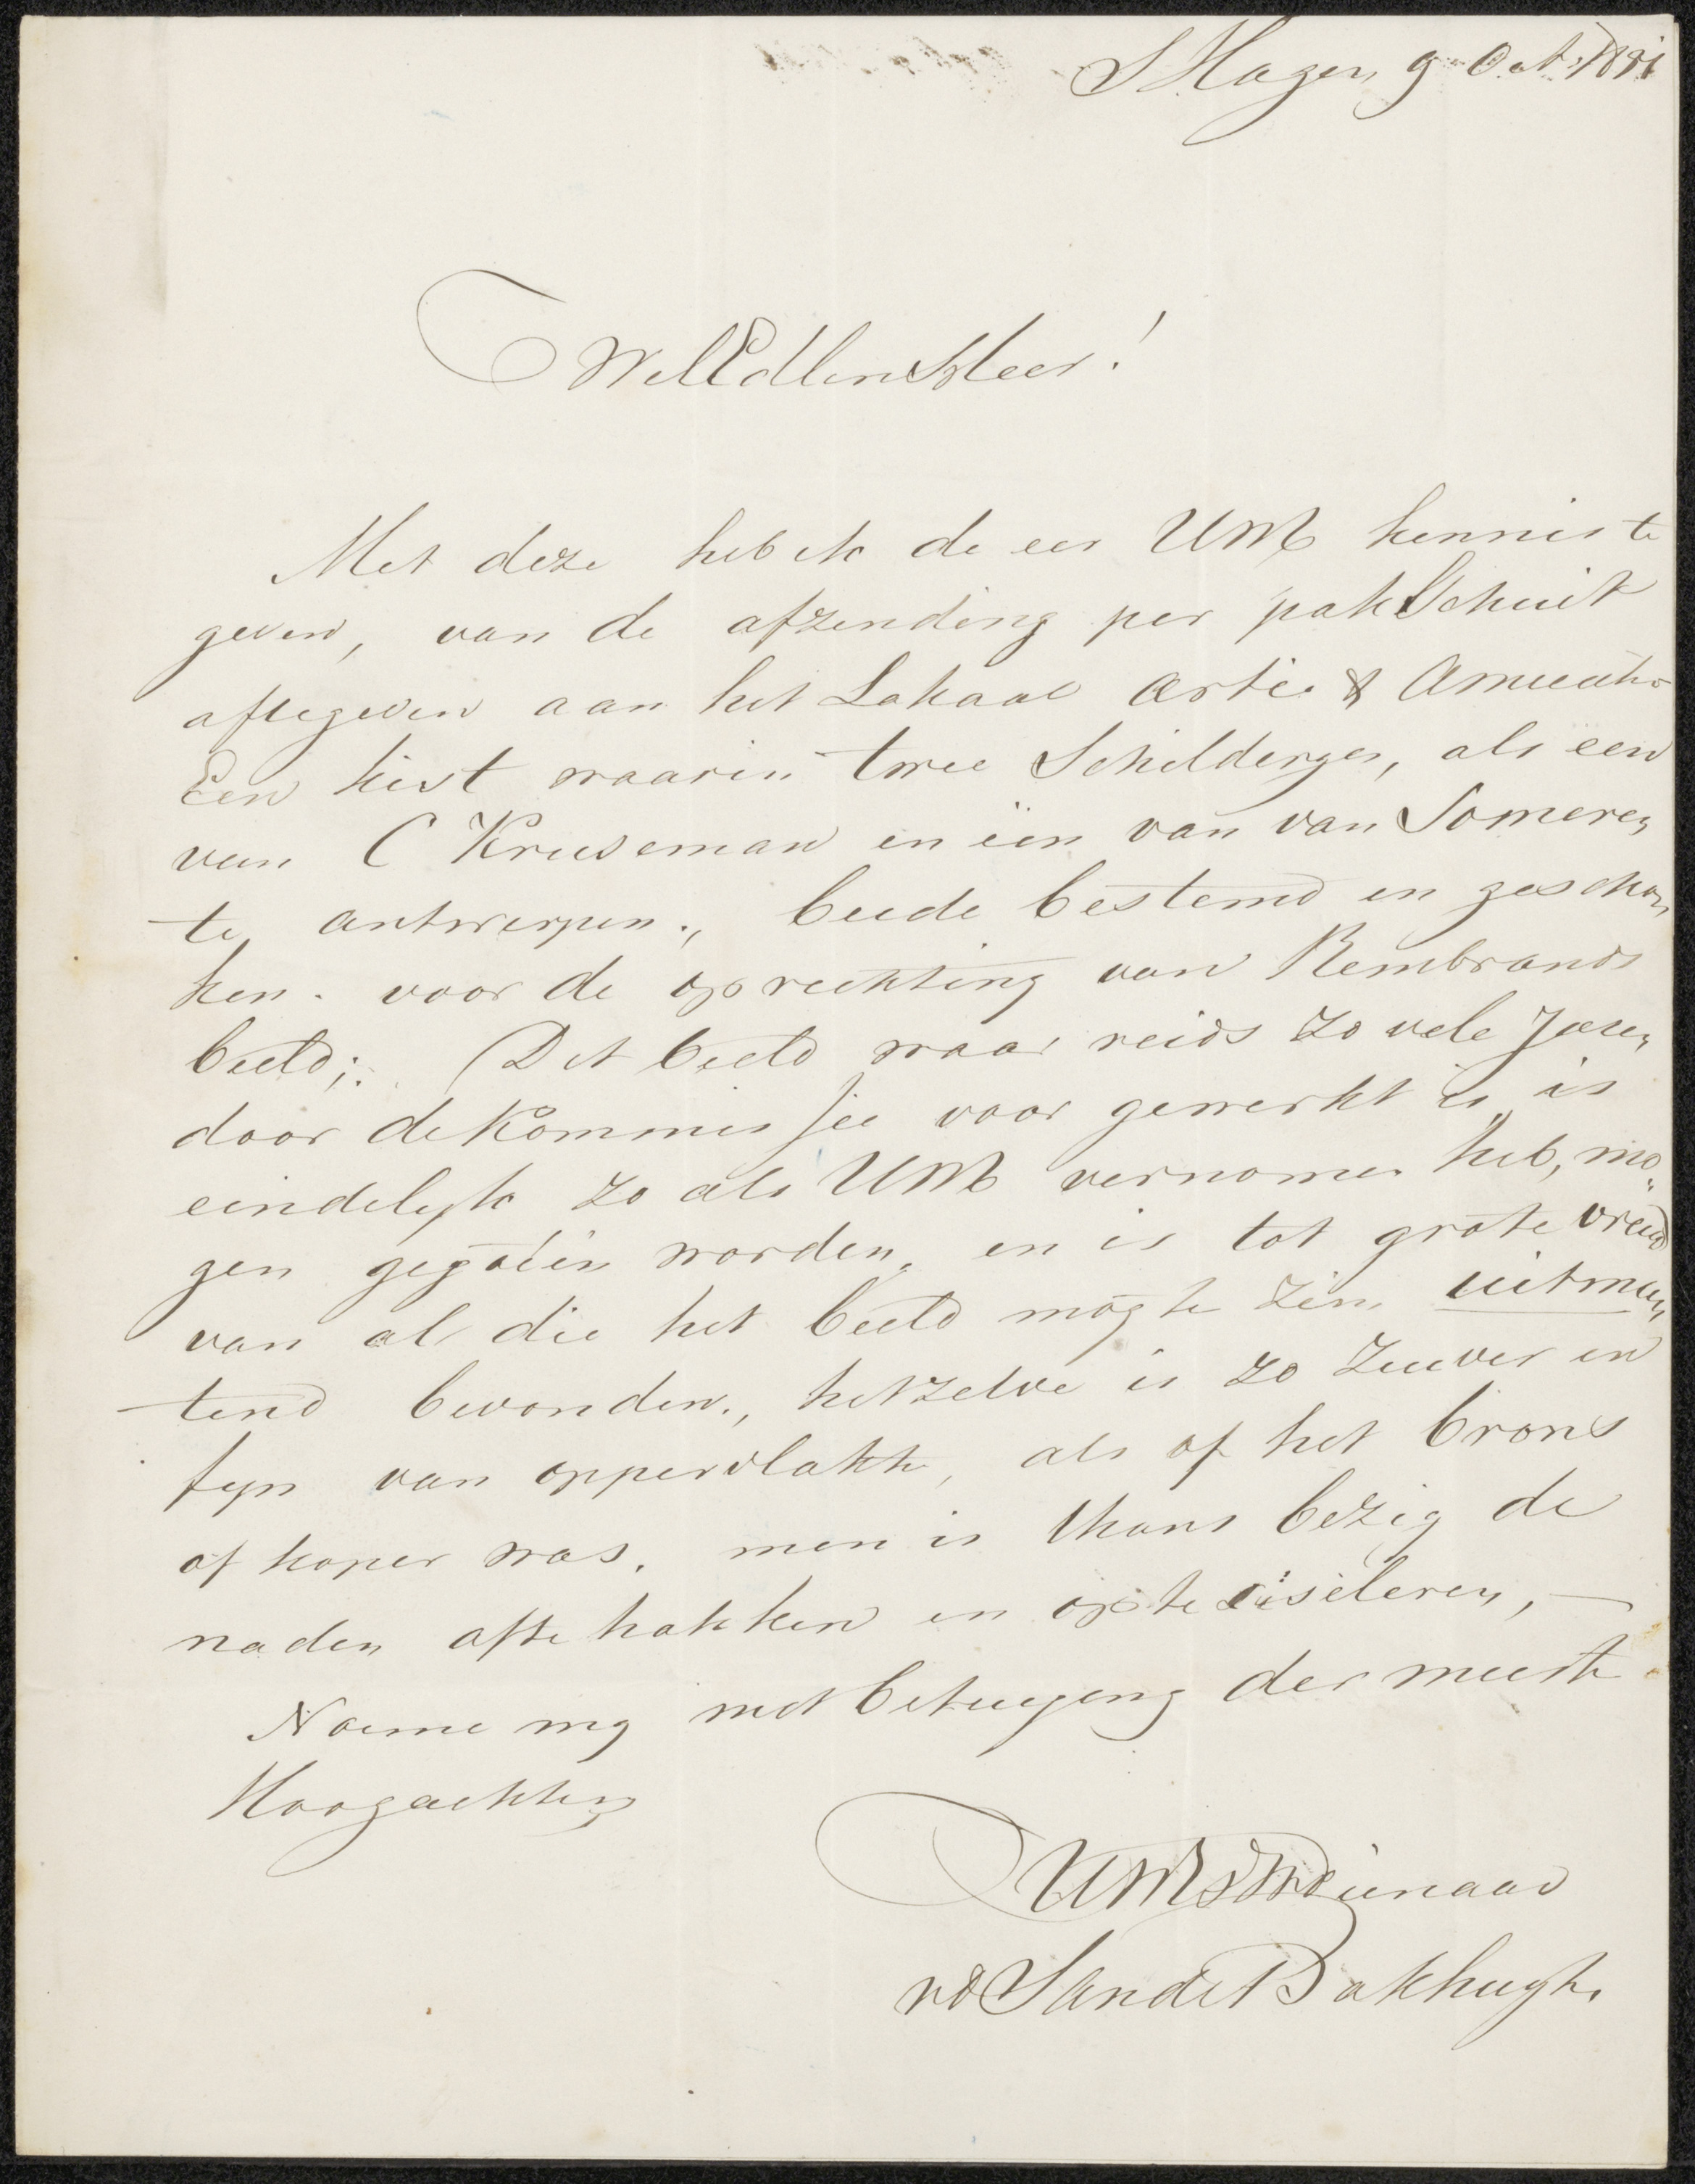 SHagen, 9 Oct. 1851
WelEdlen Heer!
Met deze heb ik de eer UWE kennis te
geven, van de afzending per pakSchuit
aftegeven aan het Lokaal Artie & Amicitia
Een kist waarin twee Schilderyen, als een
van C Kruseman en één van van Someren
te antwerpen., beide bestemd en geschon
ken. voor de oprechting van Rembrands
beeld;. Dit beeld waar reids zo vele Jaren
door de Kommissie voor gewerkt is, is
eindelyk zo als UWE vernomen heb, mo„
gen gegoten worden, en is tot grote vreud
van al die het beeld mogte zien, uitmun
tend bevonden., hetzelve is zo Zuiver en
fyn van oppervlakte, als of het brons
of koper was. men is thans bezig de
naden afte hakken en op te ciseleren, —
Noeme my met betuiging der meeste
Hoogachting
UWEDWDienaar
vd SandeBakhuyh.